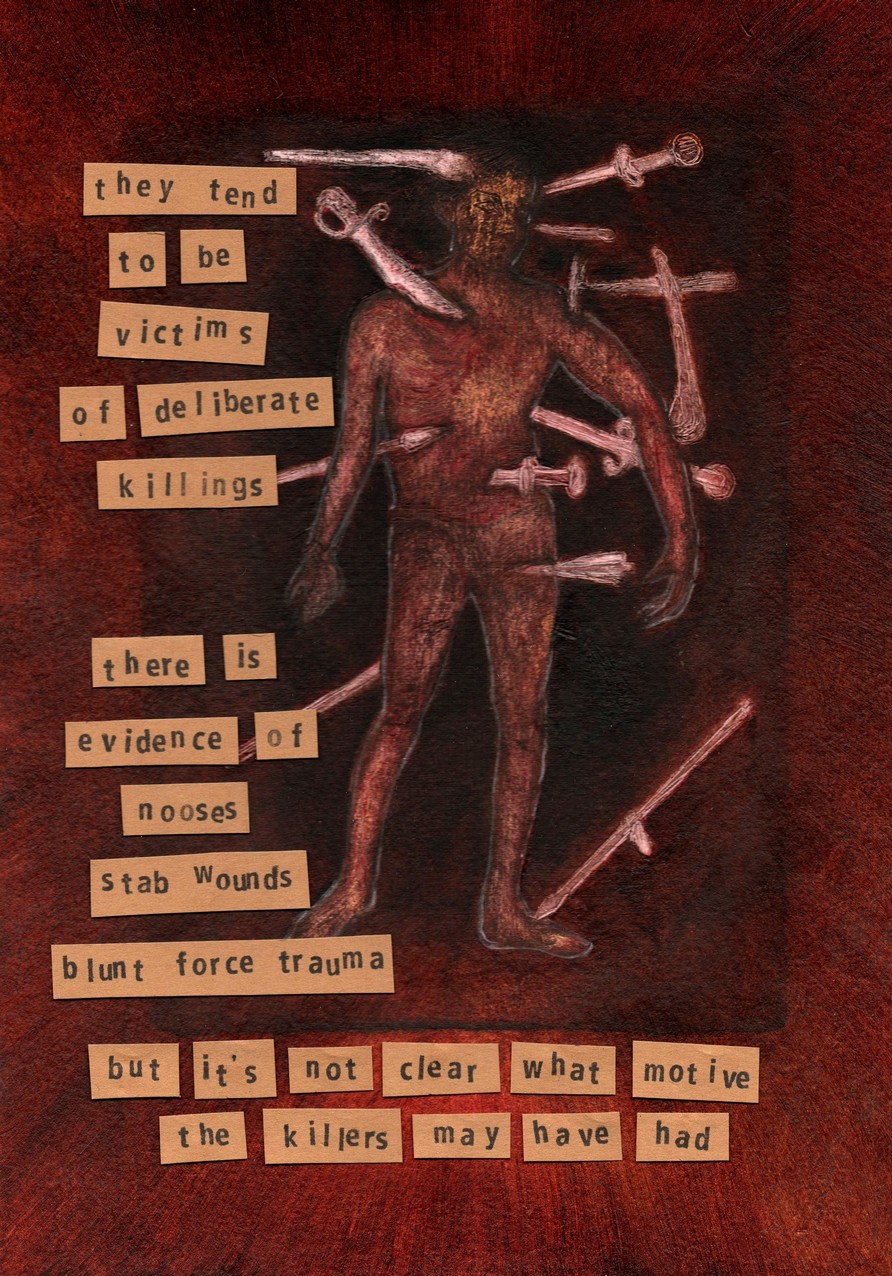 they tend
to be
victims
of deliberate
killings
there is
evidence of
nooses
stab wounds
blunt force trauma
but it's not clear what motive
the killers may have had